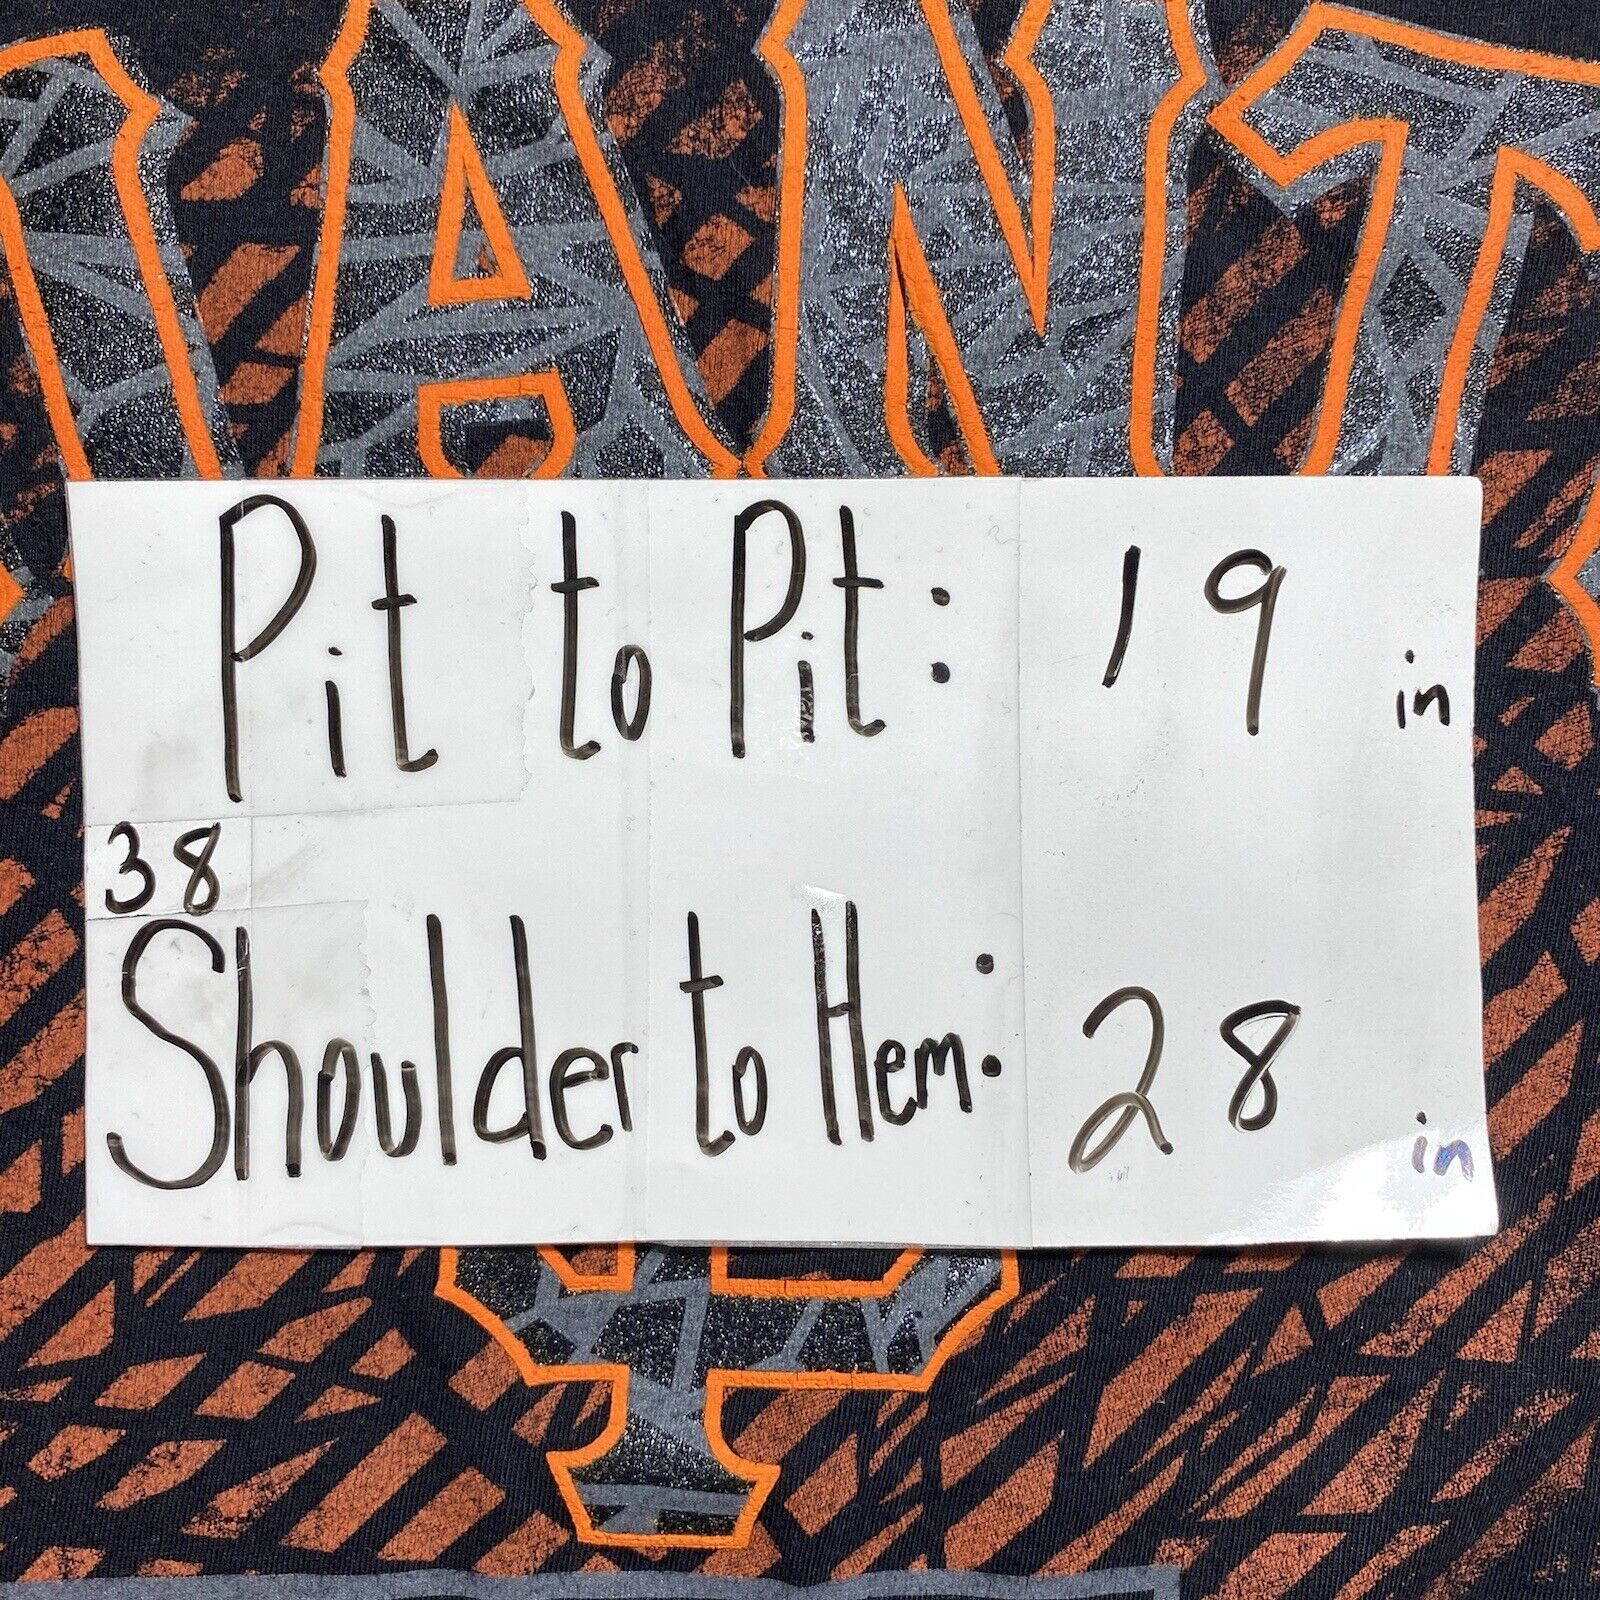 IANT
Pit to Pit: 19 in
38
Shoulder to Hem: 28 in